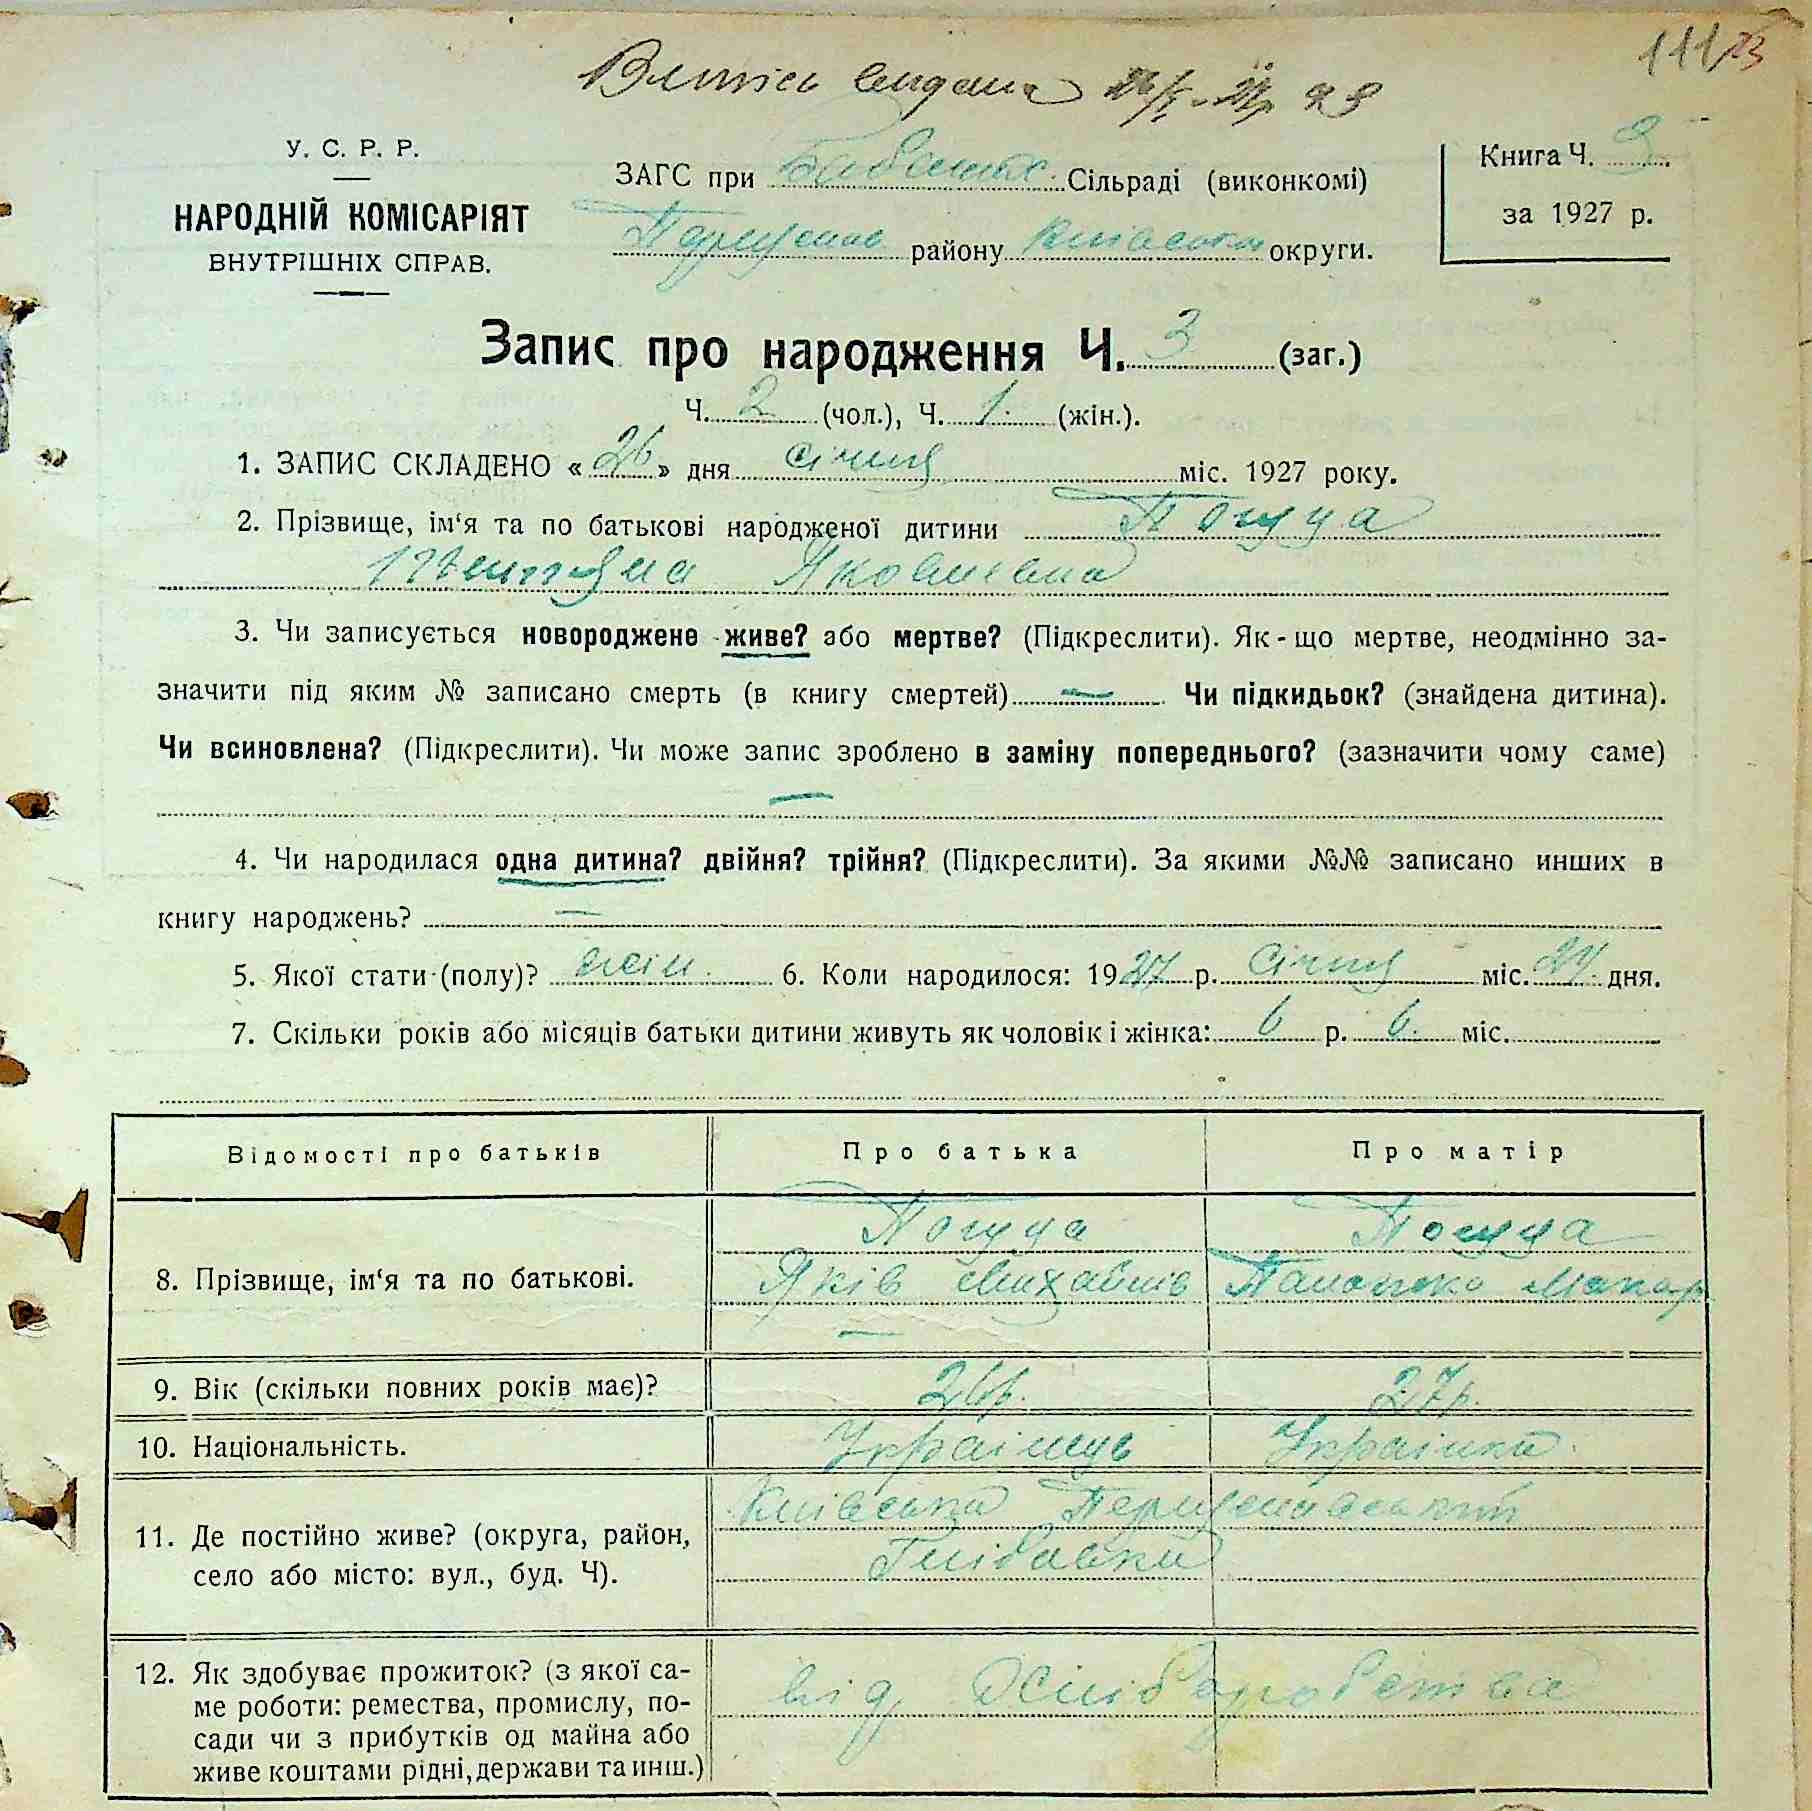 111
У. С. Р. Р.
НАРОДНІЙ КОМІСАРІЯТ
ВНУТРІШНІХ СПРАВ.
ЗАГС при Сільраді (виконкомі)
району Київської округи.
Книга Ч. 9
за 1927 р.
Запис про народження Ч. 3 (заг.)
Ч. 2 (чол.), Ч. 1 (жін.).
1. ЗАПИС СКЛАДЕНО « 26 » дня січня міс. 1927 року.
2. Прізвище, ім‘я та по батькові народженої дитини
Яковлевна
3. Чи записується новороджене живе? або мертве? (Підкреслити). Як-що мертве, неодмінно за-
значити під яким № записано смерть (в книгу смертей) — Чи підкидьок? (знайдена дитина).
Чи всиновлена? (Підкреслити). Чи може запис зроблено в заміну попереднього? (зазначити чому саме)
—
4. Чи народилася одна дитина? двійня? трійня? (Підкреслити). За якими №№ записано инших в
книгу народжень? —
5. Якої стати (полу)? жін. 6. Коли народилося: 1927 р. січня міс. 24 дня.
7. Скільки років або місяців батьки дитини живуть як чоловік і жінка: 6 р. 6. міс.
Відомості про батьків Про батька Про матір
8. Прізвище, ім‘я та по батькові.
Яків Михайлів Макар
—
9. Вік (скільки повних років має)? 26р. 27р.
10. Національність. Українець Українка
11. Де постійно живе? (округа, район,
село або місто: вул., буд. Ч).
Київська
12. Як здобуває прожиток? (з якої са-
ме роботи: ремества, промислу, по-
сади чи з прибутків од майна або
живе коштами рідні, держави та инш.)
від хліборобства